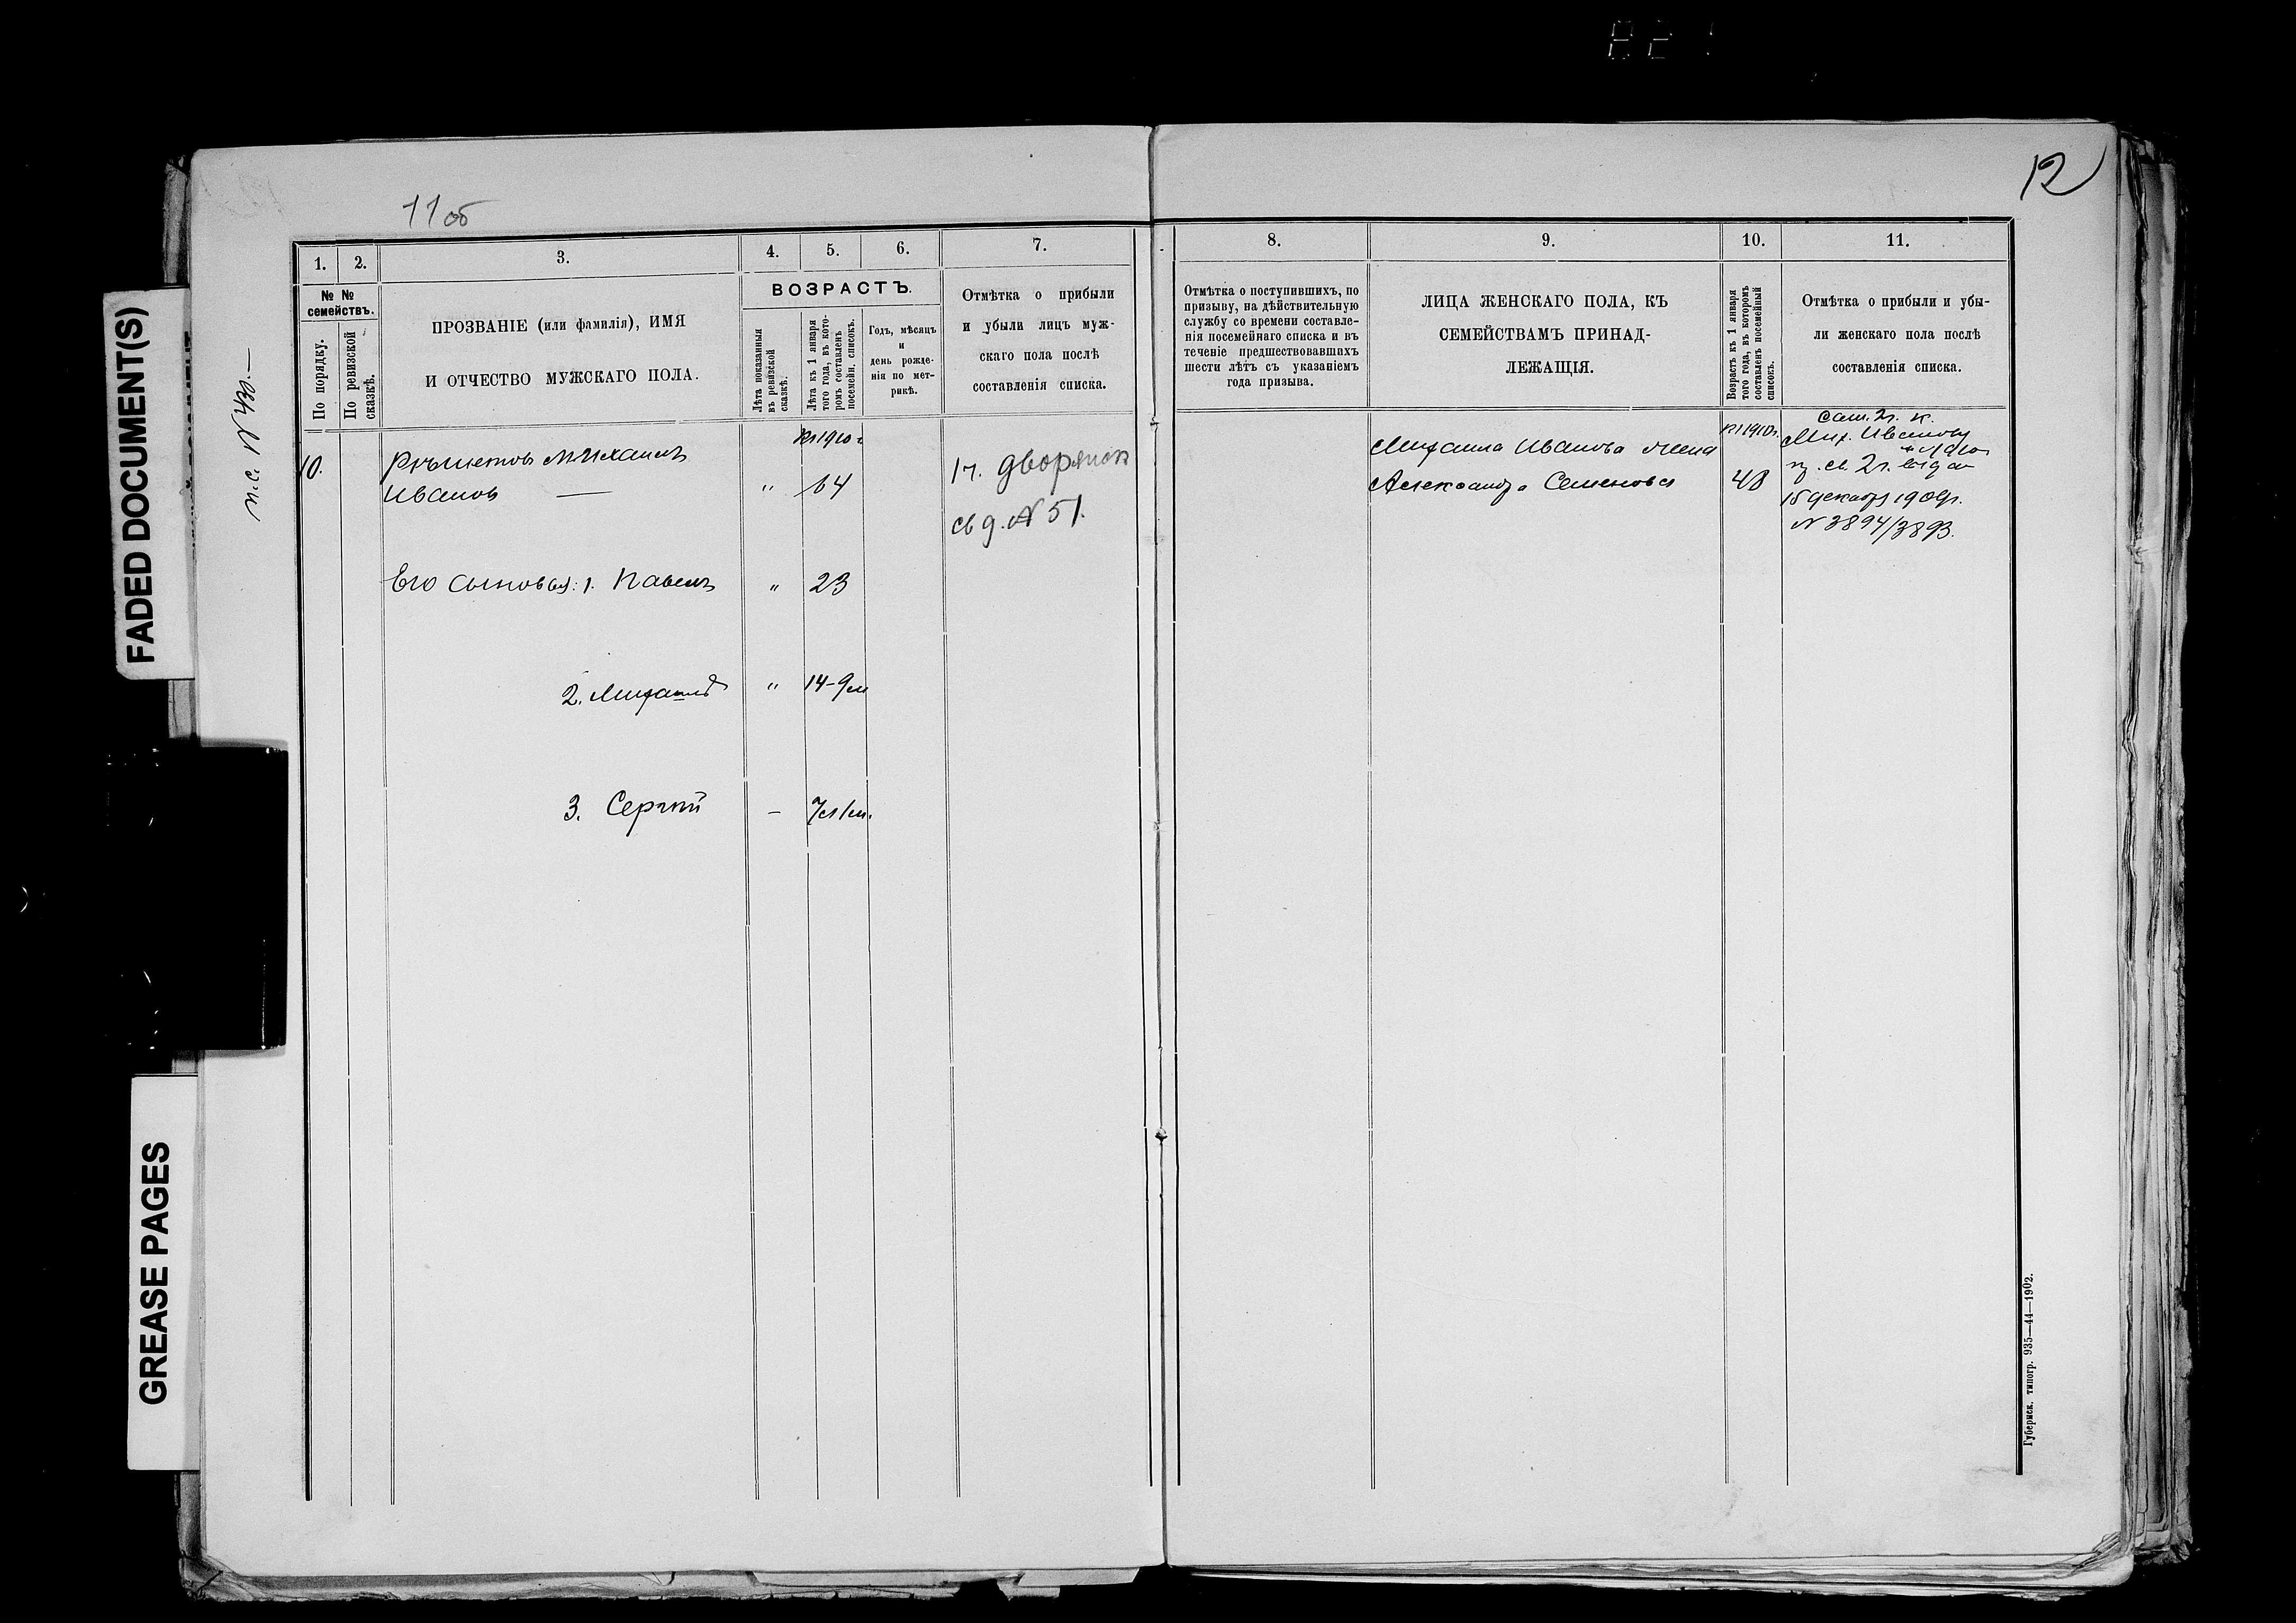 11 об
12
FADED DOCUMENT(S)
GREASE PAGES
п.с. № 430.—
1.
2.
3.
4.
5.
6.
7.
№ №
семействъ.
По порядку.
По ревизской
сказкѣ.
ПРОЗВАНІЕ (или фамилія), ИМЯ
И ОТЧЕСТВО МУЖСКАГО ПОЛА.
ВОЗРАСТЪ.
Лѣта показанныя
въ ревизской
сказкѣ.
Лѣта къ 1 января
того года, въ кото-
ромъ составленъ
посемейн. списокъ.
Годъ, мѣсяцъ
и
день рожде-
нія по мет-
рикѣ.
Отмѣтка о прибыли
и убыли лицъ муж-
скаго пола послѣ
составленія списка.
10.
Рѣшетовъ Михаилъ
Ивановъ —
1910 г
" 64
1 ч. дворянск
св д. № 51.
Его сыновья: 1. Павелъ " 23
2. Михаилъ " 14-9м
3. Сергѣй – 7л 1м.
8.
9.
10.
11.
Отмѣтка о поступившихъ, по
призыву, на дѣйствительную
службу со времени составле-
нія посемейнаго списка и въ
теченіе предшествовавшихъ
шести лѣтъ съ указаніемъ
года призыва.
ЛИЦА ЖЕНСКАГО ПОЛА, КЪ
СЕМЕЙСТВАМЪ ПРИНАД-
ЛЕЖАЩІЯ.
Возрастъ къ 1 января
того года, въ которомъ
составленъ посемейный
списокъ.
Отмѣтка о прибыли и убы-
ли женскаго пола послѣ
составленія списка.
Михаила Иванова жена
Александра Семенова
1910 г.
48
Сам. 2 г. к.
Мих. Иванову
св. 2 г. выдан
15 декабр 1909 г.
№ 3894/3893.
Губернск. типогр. 935—44—1902.